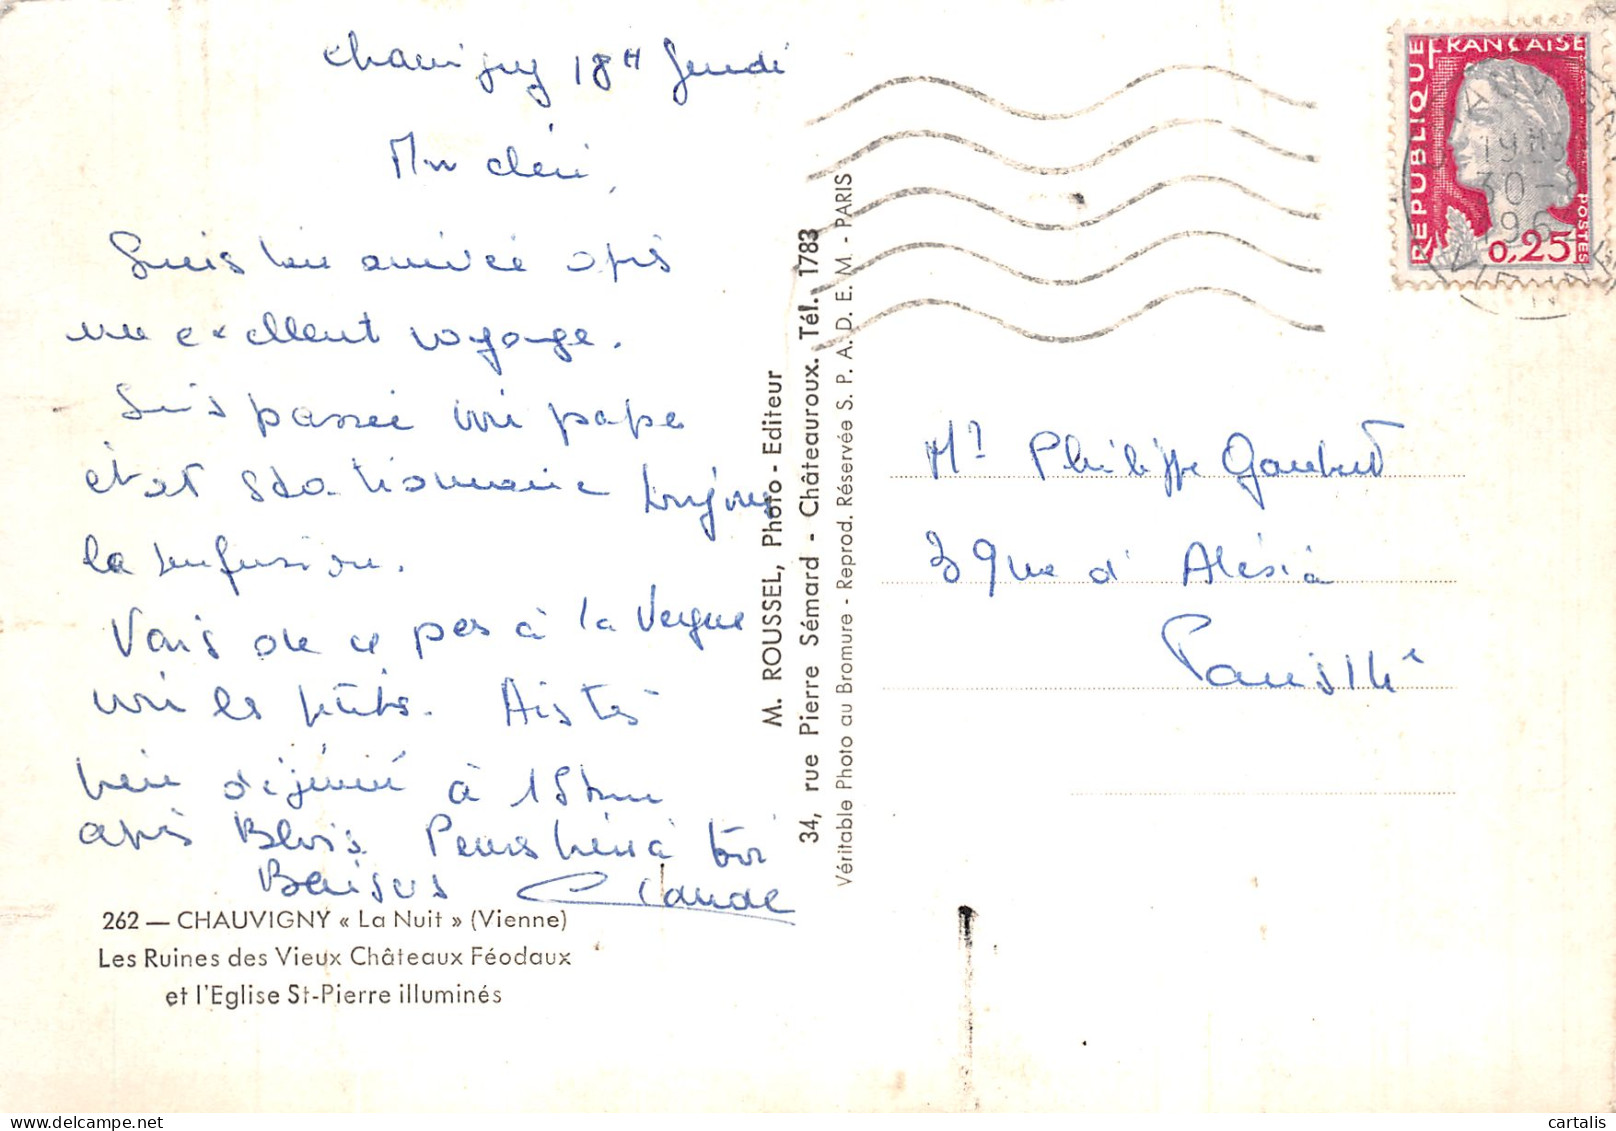 Chauvigny 18H Jeudi
Mon chéri,
Suis bien arrivée après
un excellent voyage.
Suis passée voir papa
état stationnaire toujours
la perfusion.
Vais de ce pas à la Vergne
voir les petits.
bien déjeuné à 15 km
après Blois. Pense bien à toi
Baisers Claude
262 — CHAUVIGNY « La Nuit » (Vienne)
Les Ruines des Vieux Châteaux Féodaux
et l'Eglise St-Pierre illuminés
M. ROUSSEL, Photo - Editeur
34, rue Pierre Sémard - Châteauroux. Tél. 1783
Véritable Photo au Bromure - Reprod. Réservée S. P. A. D. E. M. - PARIS
REPUBLIQUE FRANCAISE
POSTES
0,25
30 -
196
VIENNE
Mr Philippe Gaubert
39 rue d'Alésia
Paris 14e
cartalis